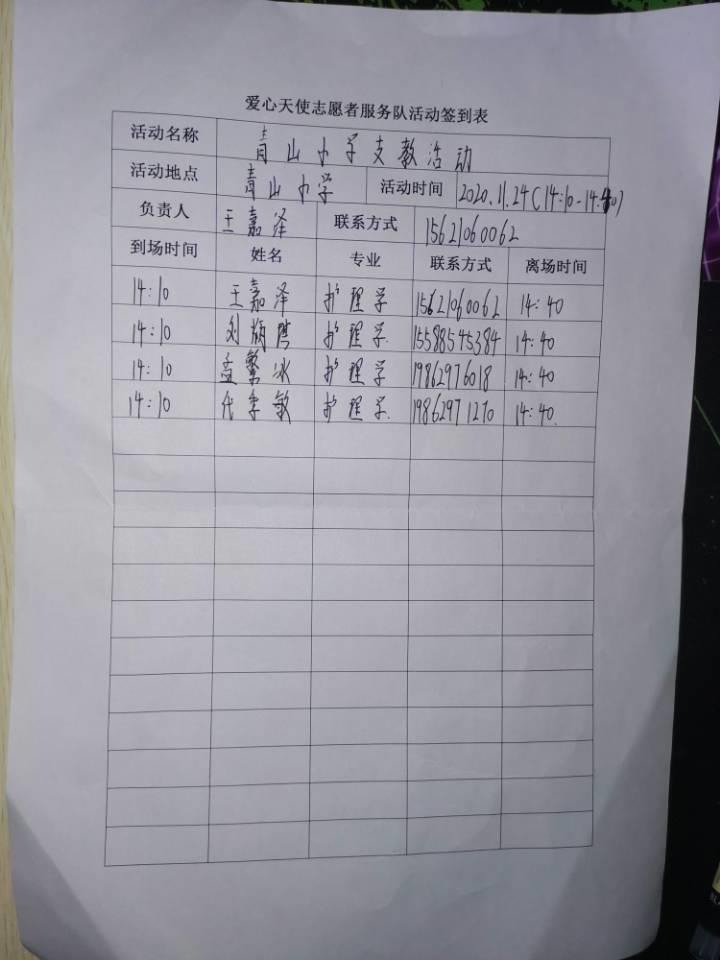 爱心天使志愿者服务队活动签到表
活动名称 青山小学支教活动
活动地点 青山小学 活动时间 2020.11.24(14:10-14:40)
负责人 王嘉泽 联系方式 15621060062
到场时间 姓名 专业 联系方式 离场时间
14:10 王嘉泽 护理学 15621060062 14:40
14:10 刘 护理学 15588545384 14:40
14:10 孟繁冰 护理学 19862976018 14:40
14:10 代季敏 护理学. 19862971270 14:40.